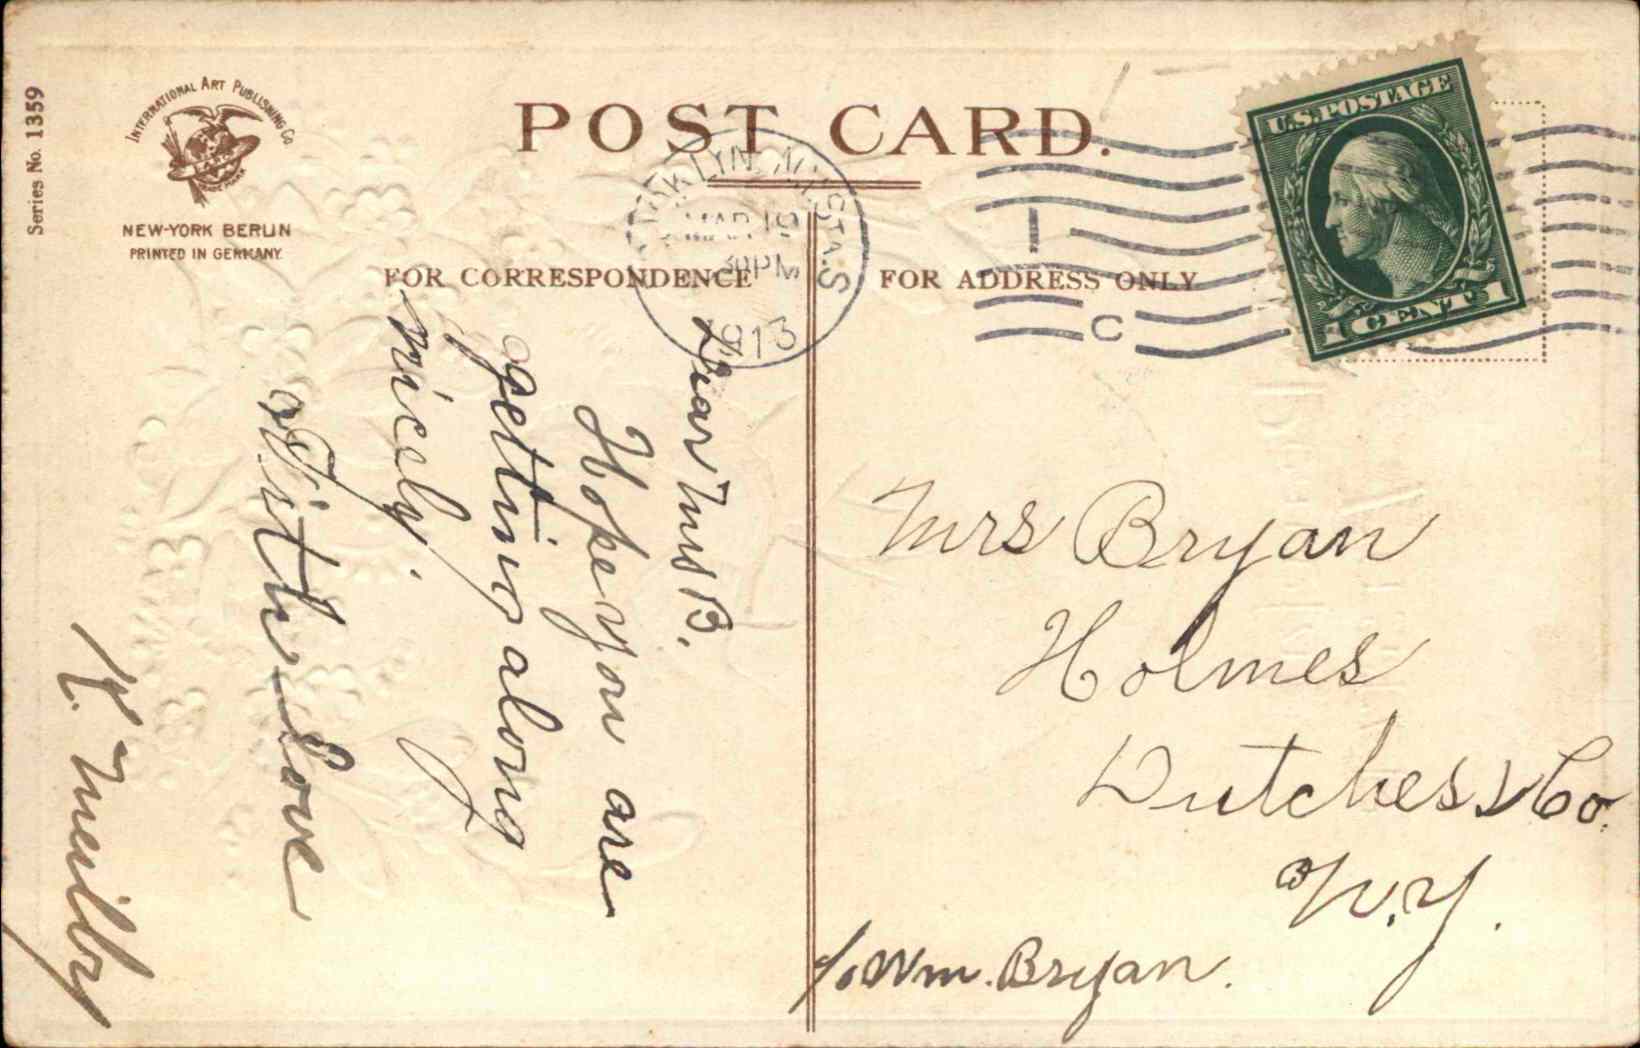 Series No. 1359
INTERNATIONAL ART PUBLISHING Co
NEW-YORK BERLIN
PRINTED IN GERMANY
POST CARD.
FOR CORRESPONDENCE
FOR ADDRESS ONLY
KLYN, N.Y. STA. S
MAR 19
30PM
1913
1
C
U.S. POSTAGE
1 CENT 1
Dear Mrs B.
Hope you are
getting along
nicely.
With Love
K. Meilby
Mrs Bryan
Holmes
Dutchess Co.
N.Y.
c/o Wm. Bryan.